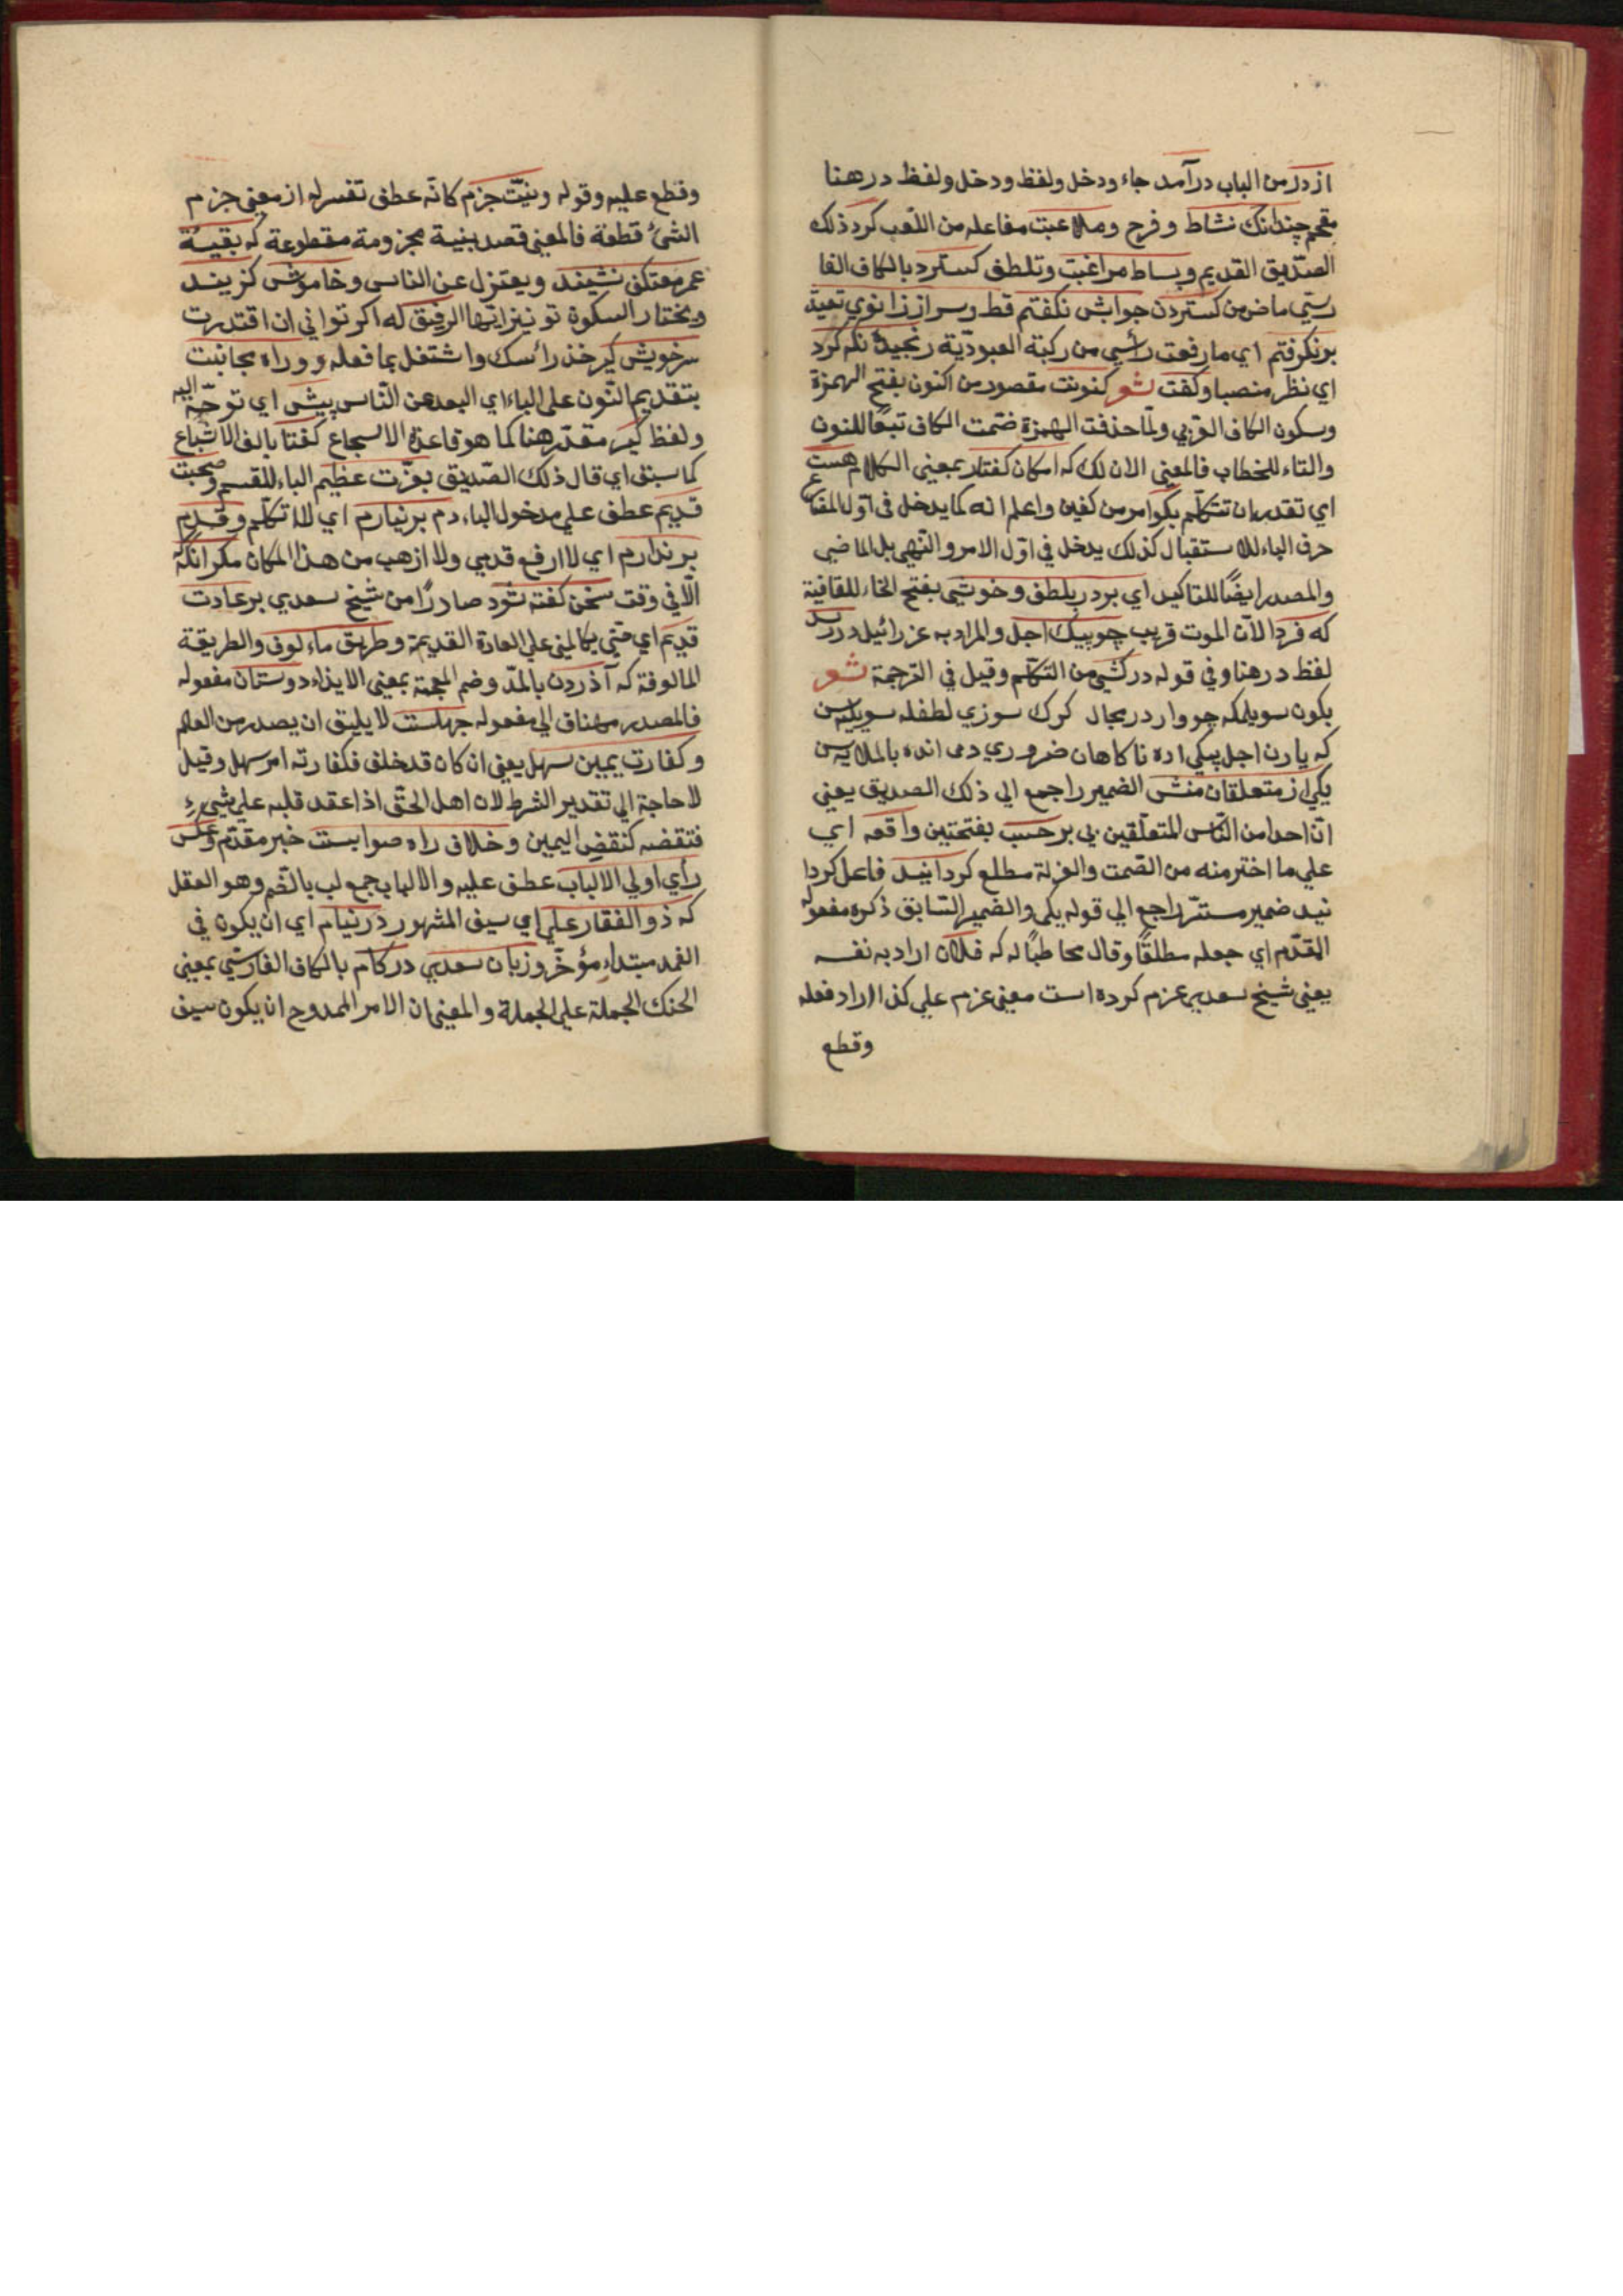 از در من الباب درآمد جاء ودخل ولفظ ودخل ولفظ در هنا
مقحم چندانك نشاط و فرح وملاعبت مفاعله من اللعب كرد ذلك
الصدّيق القديم وبساط مراغبت وتلطف كسترد بالكاف الفا
رسّي ماض من كستردن جوابش نكفتم قط وسر از زانوي تعبّد
بر نكرفتم اي ما رفعت رأسي من ركبة العبوديّة رنجيده نكه كرد
اي نظر منصبا وكفت شعر كنونت مقصور من اكنون بفتح الهمزة
وسكون الكاف العربي ولمّا حذفت الهمزة ضمّت الكاف تبعًا للنون
والتاء للخطاب فالمعني الان لك كه امكان كفتار بمعني الكلام هست
اي تقدر ان تتكلّم بكو امر من كفين واعلم انه كما يدخل في اوّل المضارع
حرف الباء للاستقبال كذلك يدخل في اوّل الامر والنهي بل الماضي
والمصدر ايضًا للتاكيد اي برادر بلطف وخوشي بفتح الخاء للقافية
كه فردا الآن الموت قريب چو پيك اجل والمراد به عزرائيل در رسد
لفظ در هنا وفي قوله دركشي من التكلّم وقيل في الترجمة شعر
بكون سويلمكه چو وار در مجال كرك سوزي لطفله سويليه سن
كه يارن اجل پيكي اره ناكاهان ضروري دمي انده باغلايه سن
يكي از متعلقان منش الضمير راجع الي ذلك الصديق يعني
انّ احدا من الناس المتعلّقين بي بر حسب بفتحتين واقعه اي
علي ما اخترمنه من الصّمت والعزلة مطلع كردانيد فاعل كردا
نيد ضمير مستتر راجع الي قوله يكي والضمير السّابق ذكره مفعوله
المقدّم اي جعله مطلقًا وقال مخاطبًا له كه فلان اراد به نفسه
يعني شيخ سعدي عزم كرده است معني عزم علي كذا اراد فعله
وقطع
وقطع عليه وقوله ونيّت جزم كانّه عطف تفسر له از معني جزم
الشئ قطعه فالمعني قصد بنيية مجزومة مقطوعة كه بقيهٔ
عمر معتكف نشيند ويعتزل عن الناس وخاموشى كزيند
ويختار السكوة تو نيز ايّها الرفيق له اكر تواني ان اقتدرت
سر خويش كير خذ رأسك واشتغل بما فعله و وراه مجانبت
بتقديم النّون علي الباء اي البعد عن النّاس پيش اي توجّه اليه
ولفظ كير مقدّر هنا كما هو قاعدة الاسجاع كفتا بالف الاشباع
كما سبق اي قال ذلك الصّديق بعزّت عظيم الباء للقسم وصحبت
قديم عطف علي مدخول الباء دم بر نيارم اي لا اتكلّم وقدم
بر ندارم اي لا ارفع قدمي ولا ازهب من هذا المكان مكر انكه
الّا في وقت سخن كفته شود صادرًا من شيخ سعدي بر عادت
قديم اي حتي يكالمني علي العادة القديمة وطريق مألوف والطريقة
المالوفة كه آذردن بالمدّ وضم المعجمة بمعني الايذاء دوستان مفعوله
فالمصدر مضاف الي مفعوله جهلست لا يليق ان يصدر من العالم
وكفارت يمين سهل يعني ان كان قد خلف فكفارته امر سهل وقيل
لا حاجة الي تقدير الشرط لان اهل الحق اذا عقد قلبه علي شيء
فتقضه كنقض اليمين وخلاف راه صوابست خبر مقدّم وعكس
رأي اولي الالباب عطف عليه والالباب جمع لب بالضّم وهو العقل
كه ذو الفقار علي اي سيف المشهور در نيام اي ان يكون في
الغمد مبتداء مؤخّر وزبان سعدي در كام بالكاف الفارسّي بمعني
الحنك الجملة علي الجملة والمعني ان الامر الممدوح ان يكون سيف